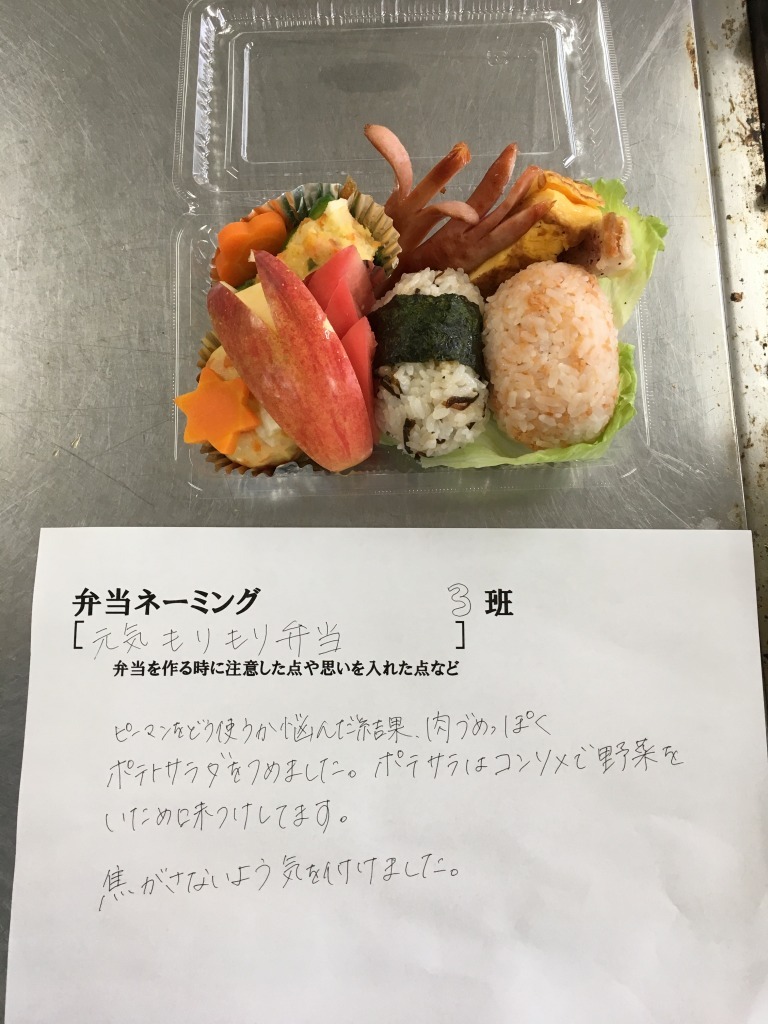 弁当ネーミング 3 班
[元気もりもり弁当]
弁当を作る時に注意した点や思いを入れた点など
ピーマンをどう使うか悩んだ結果、肉づめっぽく
ポテトサラダをつめました。ポテサラはコンソメで野菜を
いため味つけしてます。
焦がさないよう気を付けました。